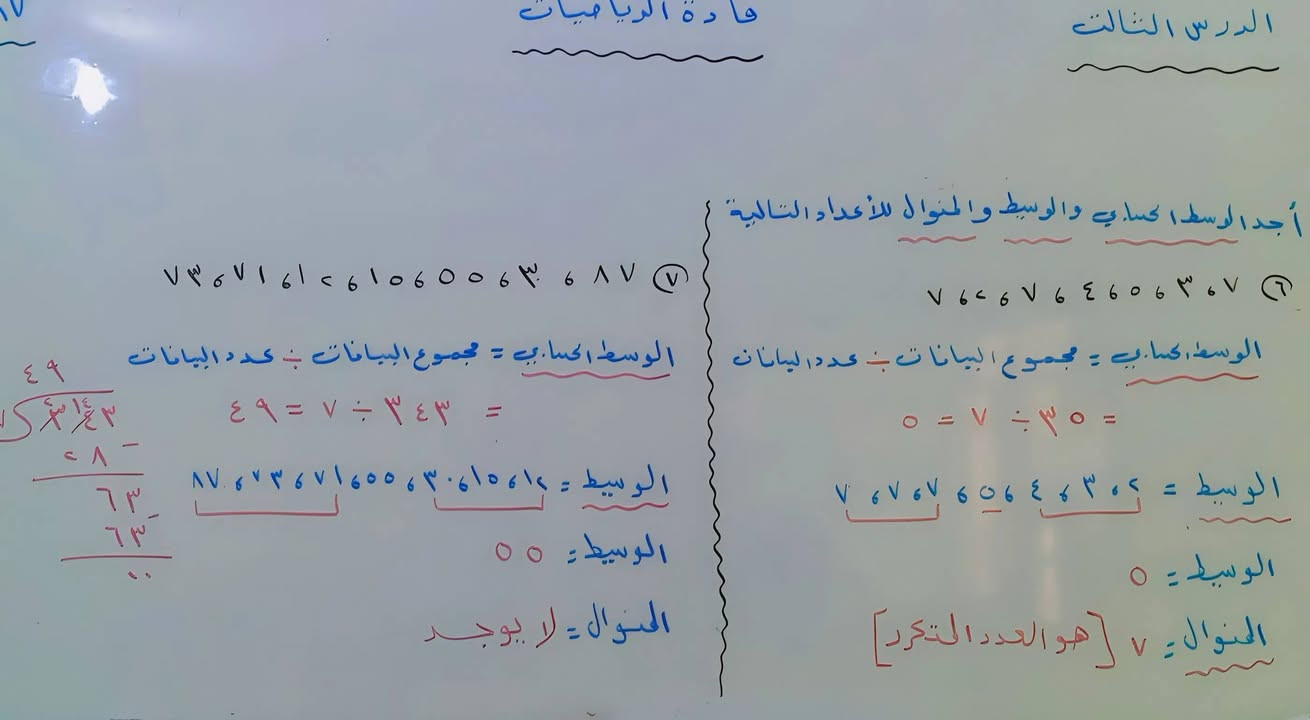 الدرس الثالث
مادة الرياضيات
أجد الوسط الحسابي والوسيط والمنوال للأعداد التالية
٦ ٧ ، ٣ ، ٥ ، ٤ ، ٧ ، ٢ ، ٧
الوسط الحسابي = مجموع البيانات ÷ عدد البيانات
= ٣٥ ÷ ٧ = ٥
الوسيط = ٢ ، ٣ ، ٤ ، ٥ ، ٧ ، ٧ ، ٧
الوسيط = ٥
المنوال = ٧ [هو العدد المتكرر]
٧ ٨٧ ، ٣٠ ، ٥٥ ، ١٥ ، ١٢ ، ٧١ ، ٧٣
الوسط الحسابي = مجموع البيانات ÷ عدد البيانات
= ٣٤٣ ÷ ٧ = ٤٩
الوسيط = ١٢ ، ١٥ ، ٣٠ ، ٥٥ ، ٧١ ، ٧٣ ، ٨٧
الوسيط = ٥٥
المنوال = لا يوجد
٤٩
٧ ٣٤٣
٢٨ -
٦٣ -
٦٣
٠٠